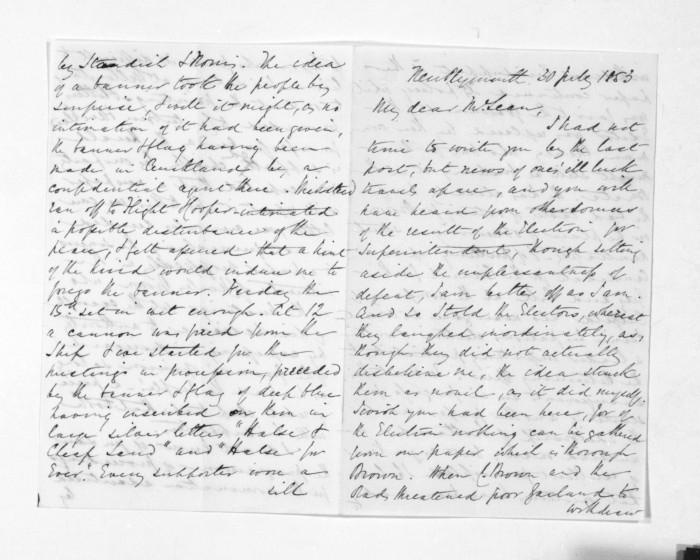 New Plymouth 30 July 1853
My dear McLean,
I had not
time to write you by the last
post, but news of one's ill luck
travels apace, and you will
have heard from other sources
of the result of the Election for
Superintendent, though setting
aside the unpleasantness of
defeat, I am better off as I am.
And so I told the Electors, whereat
they laughed inordinately, as,
though they did not actually
disbelieve me, the idea struck
them as novel, as it did myself.
I wish you had been here, for of
the Election nothing can be gathered
from our paper which is thorough
Brown. When C. Brown and the
Rads threatened poor Garland to
withdraw
by Standish & Norris. The idea
of a banner took the people by
surprise, & well it might, as no
intimation of it had been given,
the banner & flag having been
made in Auckland by a
confidential agent there.
ran off to Flight & Cooper intimated
a possible disturbance of the
peace, & felt assured that a hint
of the kind would induce me to
forego the banner. Friday the
15th set in wet enough. At 12
a cannon was fired from the
Ship & we started for the
hustings in procession, preceded
by the banner & flag of deep blue
having inscribed on them in
large silver letters "Halse &
Cheap Land" and "Halse for
Ever". Every supporter wore a
silk